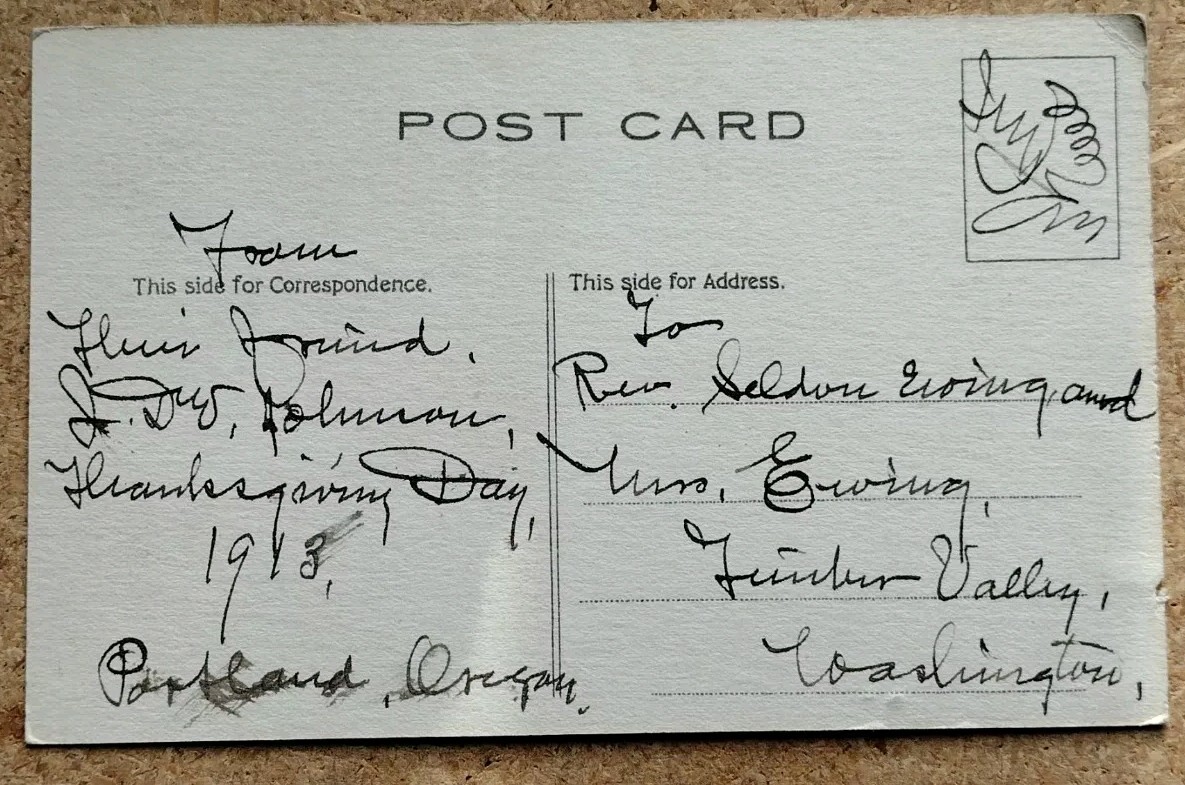 POST CARD
From
This side for Correspondence.
Their friend.
Johnson,
Thanksgiving Day,
1913,
Portland, Oregon.
This side for Address.
To
Rev. Seldon Ewing and
Mrs. Ewing,
Timber Valley,
Washington,